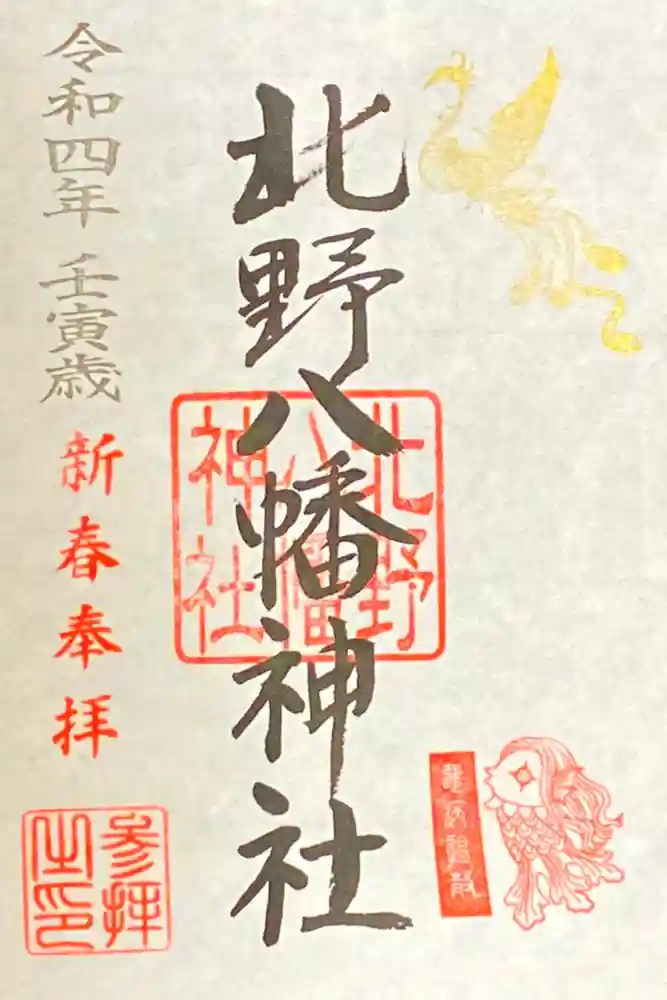 北野八幡神社
令和四年 壬寅歳
新春奉拝
北野
八幡
神社
参拝
之印